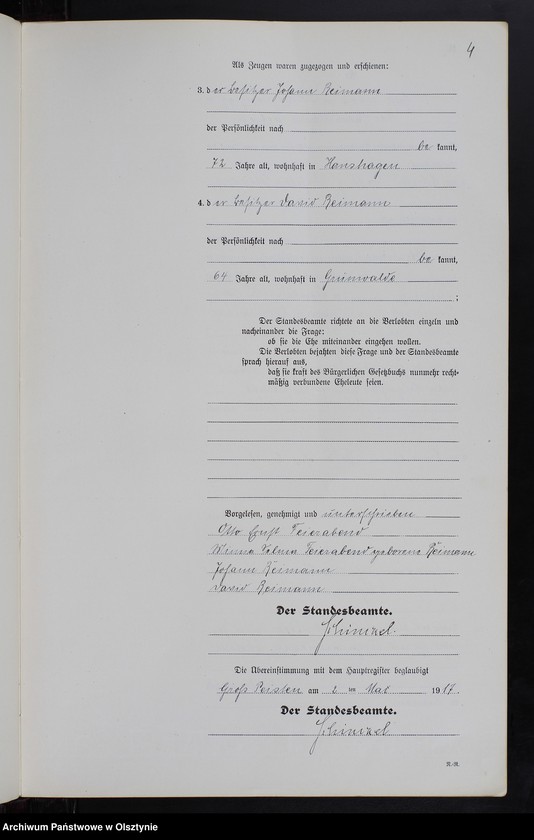 4
Als Zeugen waren zugezogen und erschienen:
3. der Besitzer Johann Reimann
der Persönlichkeit nach
be kannt,
72 Jahre alt, wohnhaft in Hanshagen
4. der Besitzer David Reimann
der Persönlichkeit nach
be kannt,
64 Jahre alt, wohnhaft in Grünwalde
;
Der Standesbeamte richtete an die Verlobten einzeln und
nacheinander die Frage:
ob sie die Ehe miteinander eingehen wollen.
Die Verlobten bejahten diese Frage und der Standesbeamte
sprach hierauf aus,
daß sie kraft des Bürgerlichen Gesetzbuchs nunmehr recht-
mäßig verbundene Eheleute seien.
Vorgelesen, genehmigt und unterschrieben
Otto Ernst Feierabend
Minna Selma Feierabend geborene Reimann
Johann Reimann
David Reimann
Der Standesbeamte.
Schinzel.
Die Übereinstimmung mit dem Hauptregister beglaubigt
Groß Peisten am 2 ten Mai 1917.
Der Standesbeamte.
Schinzel
R.-R.
Archiwum Państwowe w Olsztynie